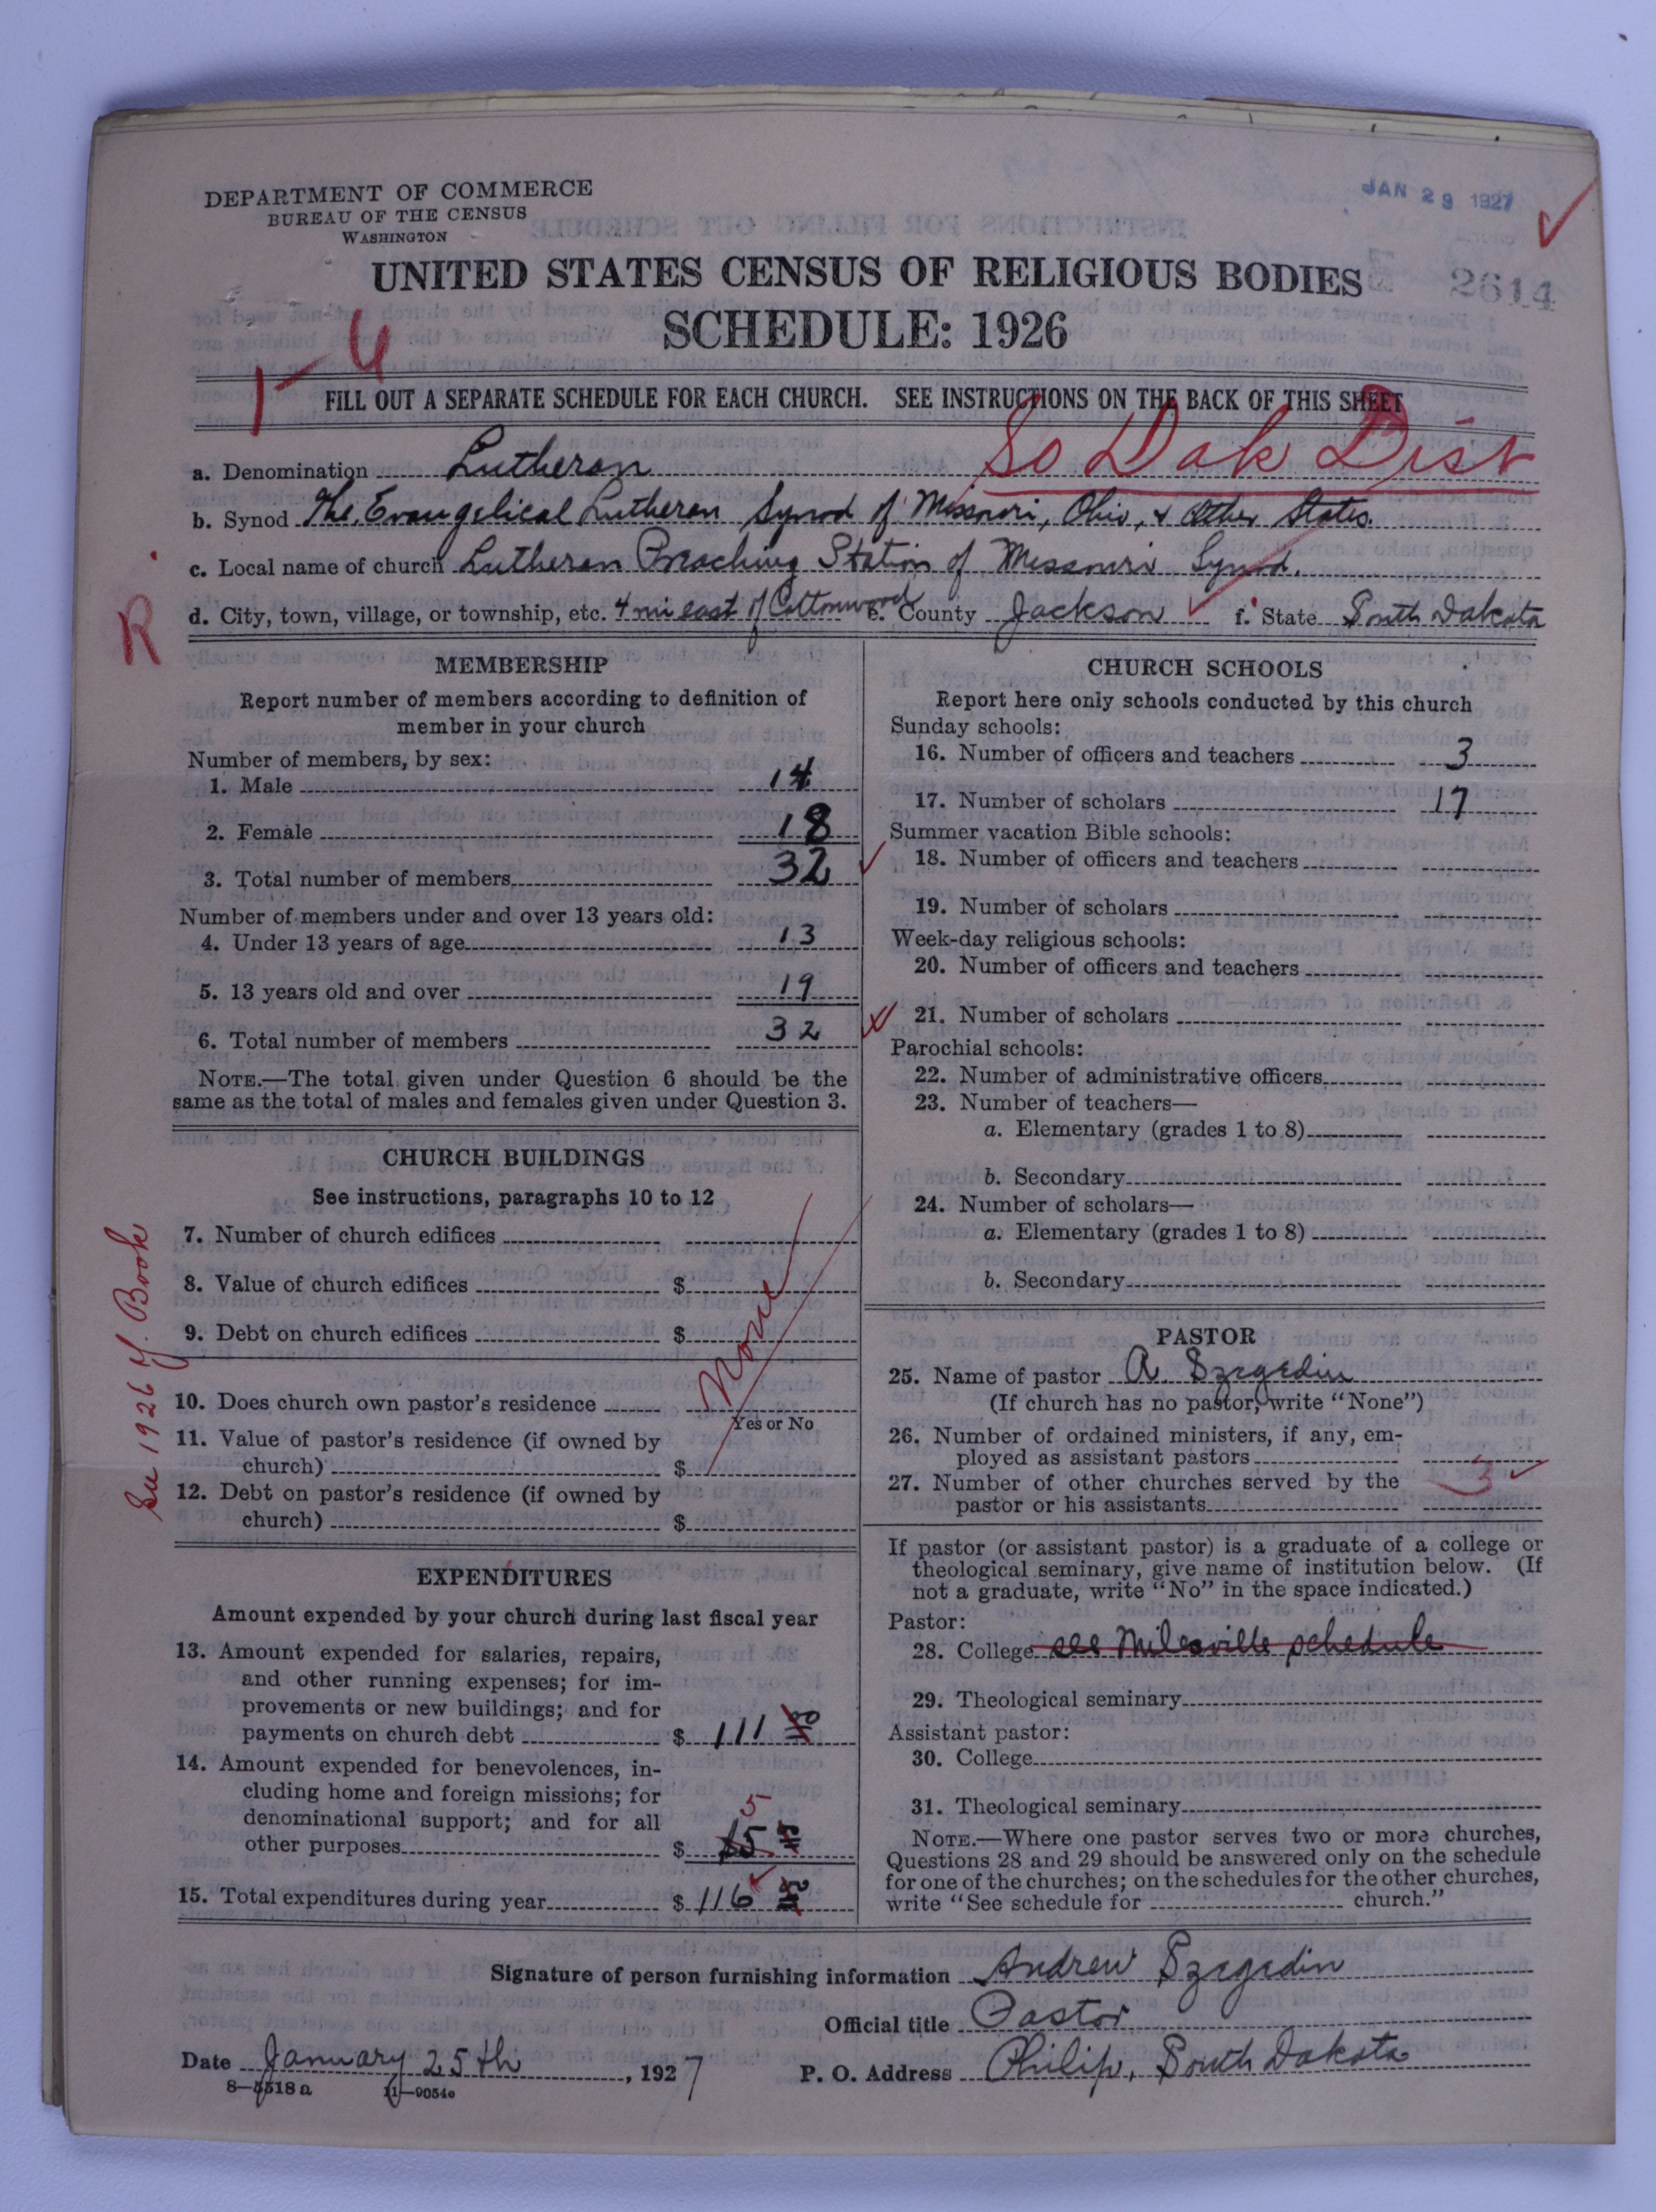 DEPARTMENT OF COMMERCE
BUREAU OF THE CENSUS
WASHINGTON
JAN 29 1927
2614
UNITED STATES CENSUS OF RELIGIOUS BODIES
SCHEDULE: 1926
FILL OUT A SEPARATE SCHEDULE FOR EACH CHURCH. SEE INSTRUCTIONS ON THE BACK OF THIS SHEET
So Dak Dist
a. Denomination Lutheran
b. Synod The Evangelical Lutheran Synod of Missouri, Ohio, & Other States.
c. Local name of church Lutheran Preaching Station of Missouri Synod.
R
d. City, town, village, or township, etc. 4 mi east of Cottonwood e. County Jackson f. State South Dakota
MEMBERSHIP
Report number of members according to definition of
member in your church
Number of members, by sex:
1. Male 14
2. Female 18
3. Total number of members 32
Number of members under and over 13 years old:
4. Under 13 years of age 13
5. 13 years old and over 19
6. Total number of members 32
NOTE.—The total given under Question 6 should be the
same as the total of males and females given under Question 3.
CHURCH BUILDINGS
See instructions, paragraphs 10 to 12
7. Number of church edifices
8. Value of church edifices $
9. Debt on church edifices $
None
10. Does church own pastor's residence
Yes or No
11. Value of pastor's residence (if owned by
church) $
12. Debt on pastor's residence (if owned by
church) $
See 1926 Y. Book
EXPENDITURES
Amount expended by your church during last fiscal year
13. Amount expended for salaries, repairs,
and other running expenses; for im-
provements or new buildings; and for
payments on church debt $ 111
14. Amount expended for benevolences, in-
cluding home and foreign missions; for
denominational support; and for all
5
other purposes $ 5
15. Total expenditures during year $ 116
CHURCH SCHOOLS
Report here only schools conducted by this church
Sunday schools:
16. Number of officers and teachers 3
17. Number of scholars 17
Summer vacation Bible schools:
18. Number of officers and teachers
19. Number of scholars
Week-day religious schools:
20. Number of officers and teachers
21. Number of scholars
Parochial schools:
22. Number of administrative officers
23. Number of teachers—
a. Elementary (grades 1 to 8)
b. Secondary
24. Number of scholars—
a. Elementary (grades 1 to 8)
b. Secondary
PASTOR
25. Name of pastor A Szegedin
(If church has no pastor, write "None")
26. Number of ordained ministers, if any, em-
ployed as assistant pastors
27. Number of other churches served by the 3
pastor or his assistants
If pastor (or assistant pastor) is a graduate of a college or
theological seminary, give name of institution below. (If
not a graduate, write "No" in the space indicated.)
Pastor:
28. College see Milesville schedule
29. Theological seminary
Assistant pastor:
30. College
31. Theological seminary
NOTE.—Where one pastor serves two or more churches,
Questions 28 and 29 should be answered only on the schedule
for one of the churches; on the schedules for the other churches,
write "See schedule for church."
Signature of person furnishing information Andrew Szegedin
Official title Pastor
Date January 25th, 1927 P. O. Address Philip, South Dakota
8—5518 a 11—9054e